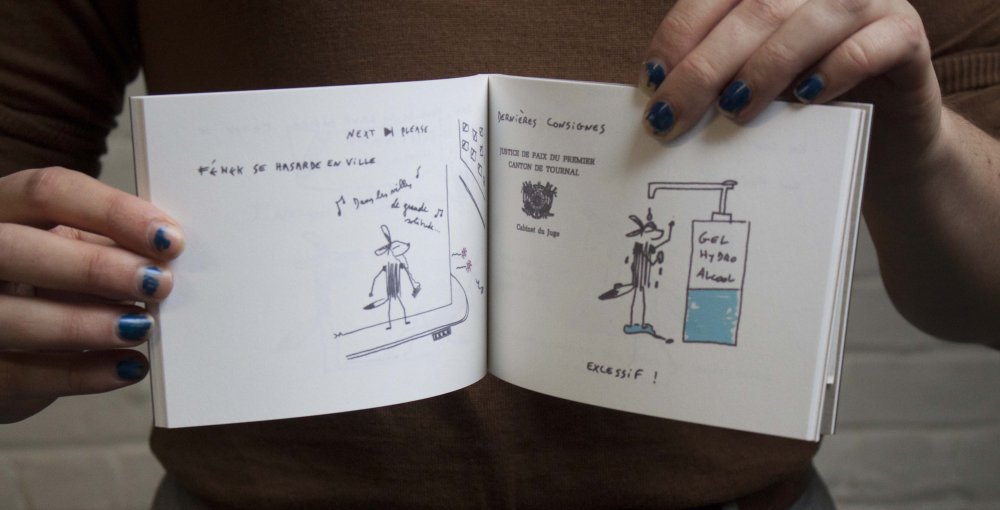 NEXT PLEASE
FÉNEK SE HASARDE EN VILLE
Dans les villes
de grande
solitude...
DERNIÈRES CONSIGNES
JUSTICE DE PAIX DU PREMIER
CANTON DE TOURNAI
Cabinet du Juge
GEL
HYDRO
ALCOOL
EXCESSIF !